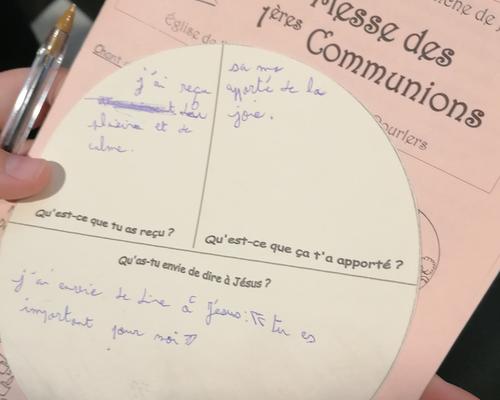 Messe des
1ères Communions
Église de
Chant
ourlers
j'ai reçu
plaisir et de
calme.
Qu'est-ce que tu as reçu ?
sa ma
apporté de la
joie.
Qu'est-ce que ça t'a apporté ?
Qu'as-tu envie de dire à Jésus ?
j'ai envie de dire à Jésus : " tu es
important pour moi "